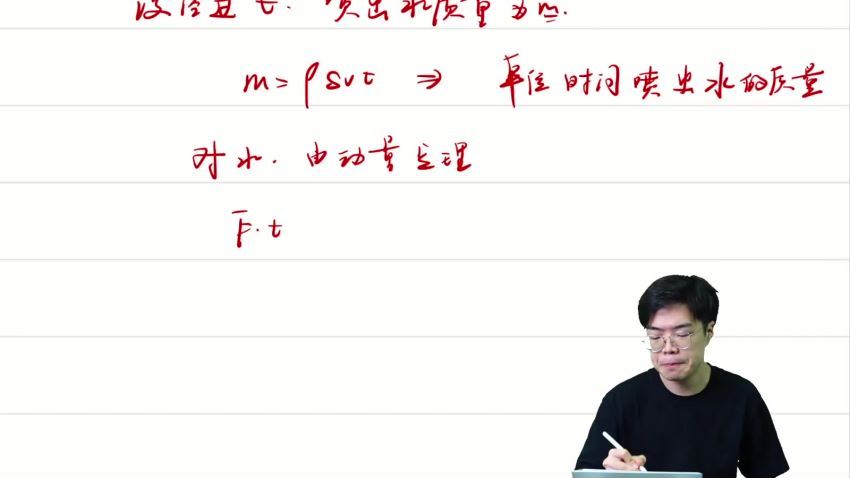 设经过 t. 喷出水质量为m.
m = ρsvt ⇒ 单位时间喷出水的质量
对水. 由动量定理
F̅·t